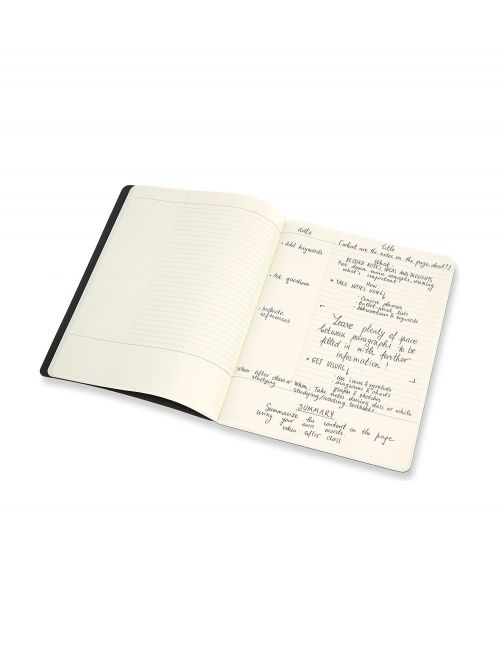 date
title
(what are the notes on the page about?)
• Add keywords
What:
RECORD NOTES, IDEAS AND THOUGHTS,
Put down main concepts, marking
what's important
• Ask questions
• TAKE NOTES USING
How:
Concise phrases
bullet point lists
abbreviations & keywords
• Include
references
Leave plenty of space
between paragraphs to be
filled in with further
information!
• GET VISUAL
Use icons & symbols
diagrams & charts
graphs & sketches
When: after class or
studying
When: Take notes during class or while
studying/reading textbooks
SUMMARY
Summarise the content on the page
using your own words
When: after class